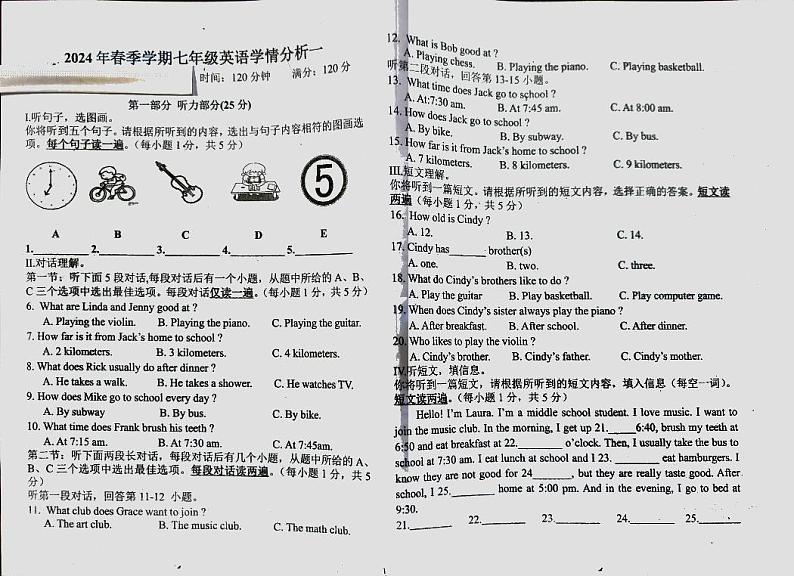 2024 年春季学期七年级英语学情分析一
时间：120 分钟 满分：120 分
第一部分 听力部分(25 分)
I.听句子，选图画。
你将听到五个句子。请根据所听到的内容，选出与句子内容相符的图画选
项。每个句子读一遍。（每小题 1 分，共 5 分）
5
A B C D E
1.________ 2.________ 3.________ 4.________ 5.________
II.对话理解。
第一节：听下面 5 段对话,每段对话后有一个小题，从题中所给的 A、B、
C 三个选项中选出最佳选项。每段对话仅读一遍。（每小题 1 分，共 5 分）
6. What are Linda and Jenny good at ?
A. Playing the violin. B. Playing the piano. C. Playing the guitar.
7. How far is it from Jack's home to school ?
A. 2 kilometers. B. 3 kilometers. C. 4 kilometers.
8. What does Rick usually do after dinner ?
A. He takes a walk. B. He takes a shower. C. He watches TV.
9. How does Mike go to school every day ?
A. By subway B. By bus. C. By bike.
10. What time does Frank brush his teeth ?
A. At 7:15 am. B. At 7:30 am. C. At 7:45am.
第二节：听下面两段长对话，每段对话后有几个小题，从题中所给的 A、
B、C 三个选项中选出最佳选项。每段对话读两遍。（每小题 1 分，共 5
分）
听第一段对话，回答第 11-12 小题。
11. What club does Grace want to join ?
A. The art club. B. The music club. C. The math club.
12. What is Bob good at ?
A. Playing chess. B. Playing the piano. C. Playing basketball.
听第二段对话，回答第 13-15 小题。
13. What time does Jack go to school ?
A. At:7:30 am. B. At 7:45 am. C. At 8:00 am.
14. How does Jack go to school ?
A. By bike. B. By subway. C. By bus.
15. How far is it from Jack's home to school ?
A. 7 kilometers. B. 8 kilometers. C. 9 kilometers.
III.短文理解。
你将听到一篇短文。请根据所听到的短文内容，选择正确的答案。短文读
两遍。（每小题 1 分，共 5 分）
16. How old is Cindy ?
A. 12. B. 13. C. 14.
17. Cindy has_______ brother(s)
A. one. B. two. C. three.
18. What do Cindy's brothers like to do ?
A. Play the guitar B. Play basketball. C. Play computer game.
19. When does Cindy's sister always play the piano ?
A. After breakfast. B. After school. C. After dinner.
20. Who likes to play the violin ?
A. Cindy's brother. B. Cindy's father. C. Cindy's mother.
IV.听短文，填信息。
你将听到一篇短文，请根据所听到的短文内容，填入信息（每空一词）。
短文读两遍。（每小题 1 分，共 5 分）
Hello! I'm Laura. I'm a middle school student. I love music. I want to
join the music club. In the morning, I get up 21._____6:40, brush my teeth at
6:50 and eat breakfast at 22.________ o'clock. Then, I usually take the bus to
school at 7:30 am. I eat lunch at school and I 23.________ eat hamburgers. I
know they are not good for 24_______, but they are really taste good. After
school, I 25.________ home at 5:00 pm. And in the evening, I go to bed at
9:30.
21.________ 22.________ 23.________ 24.________ 25.________
1